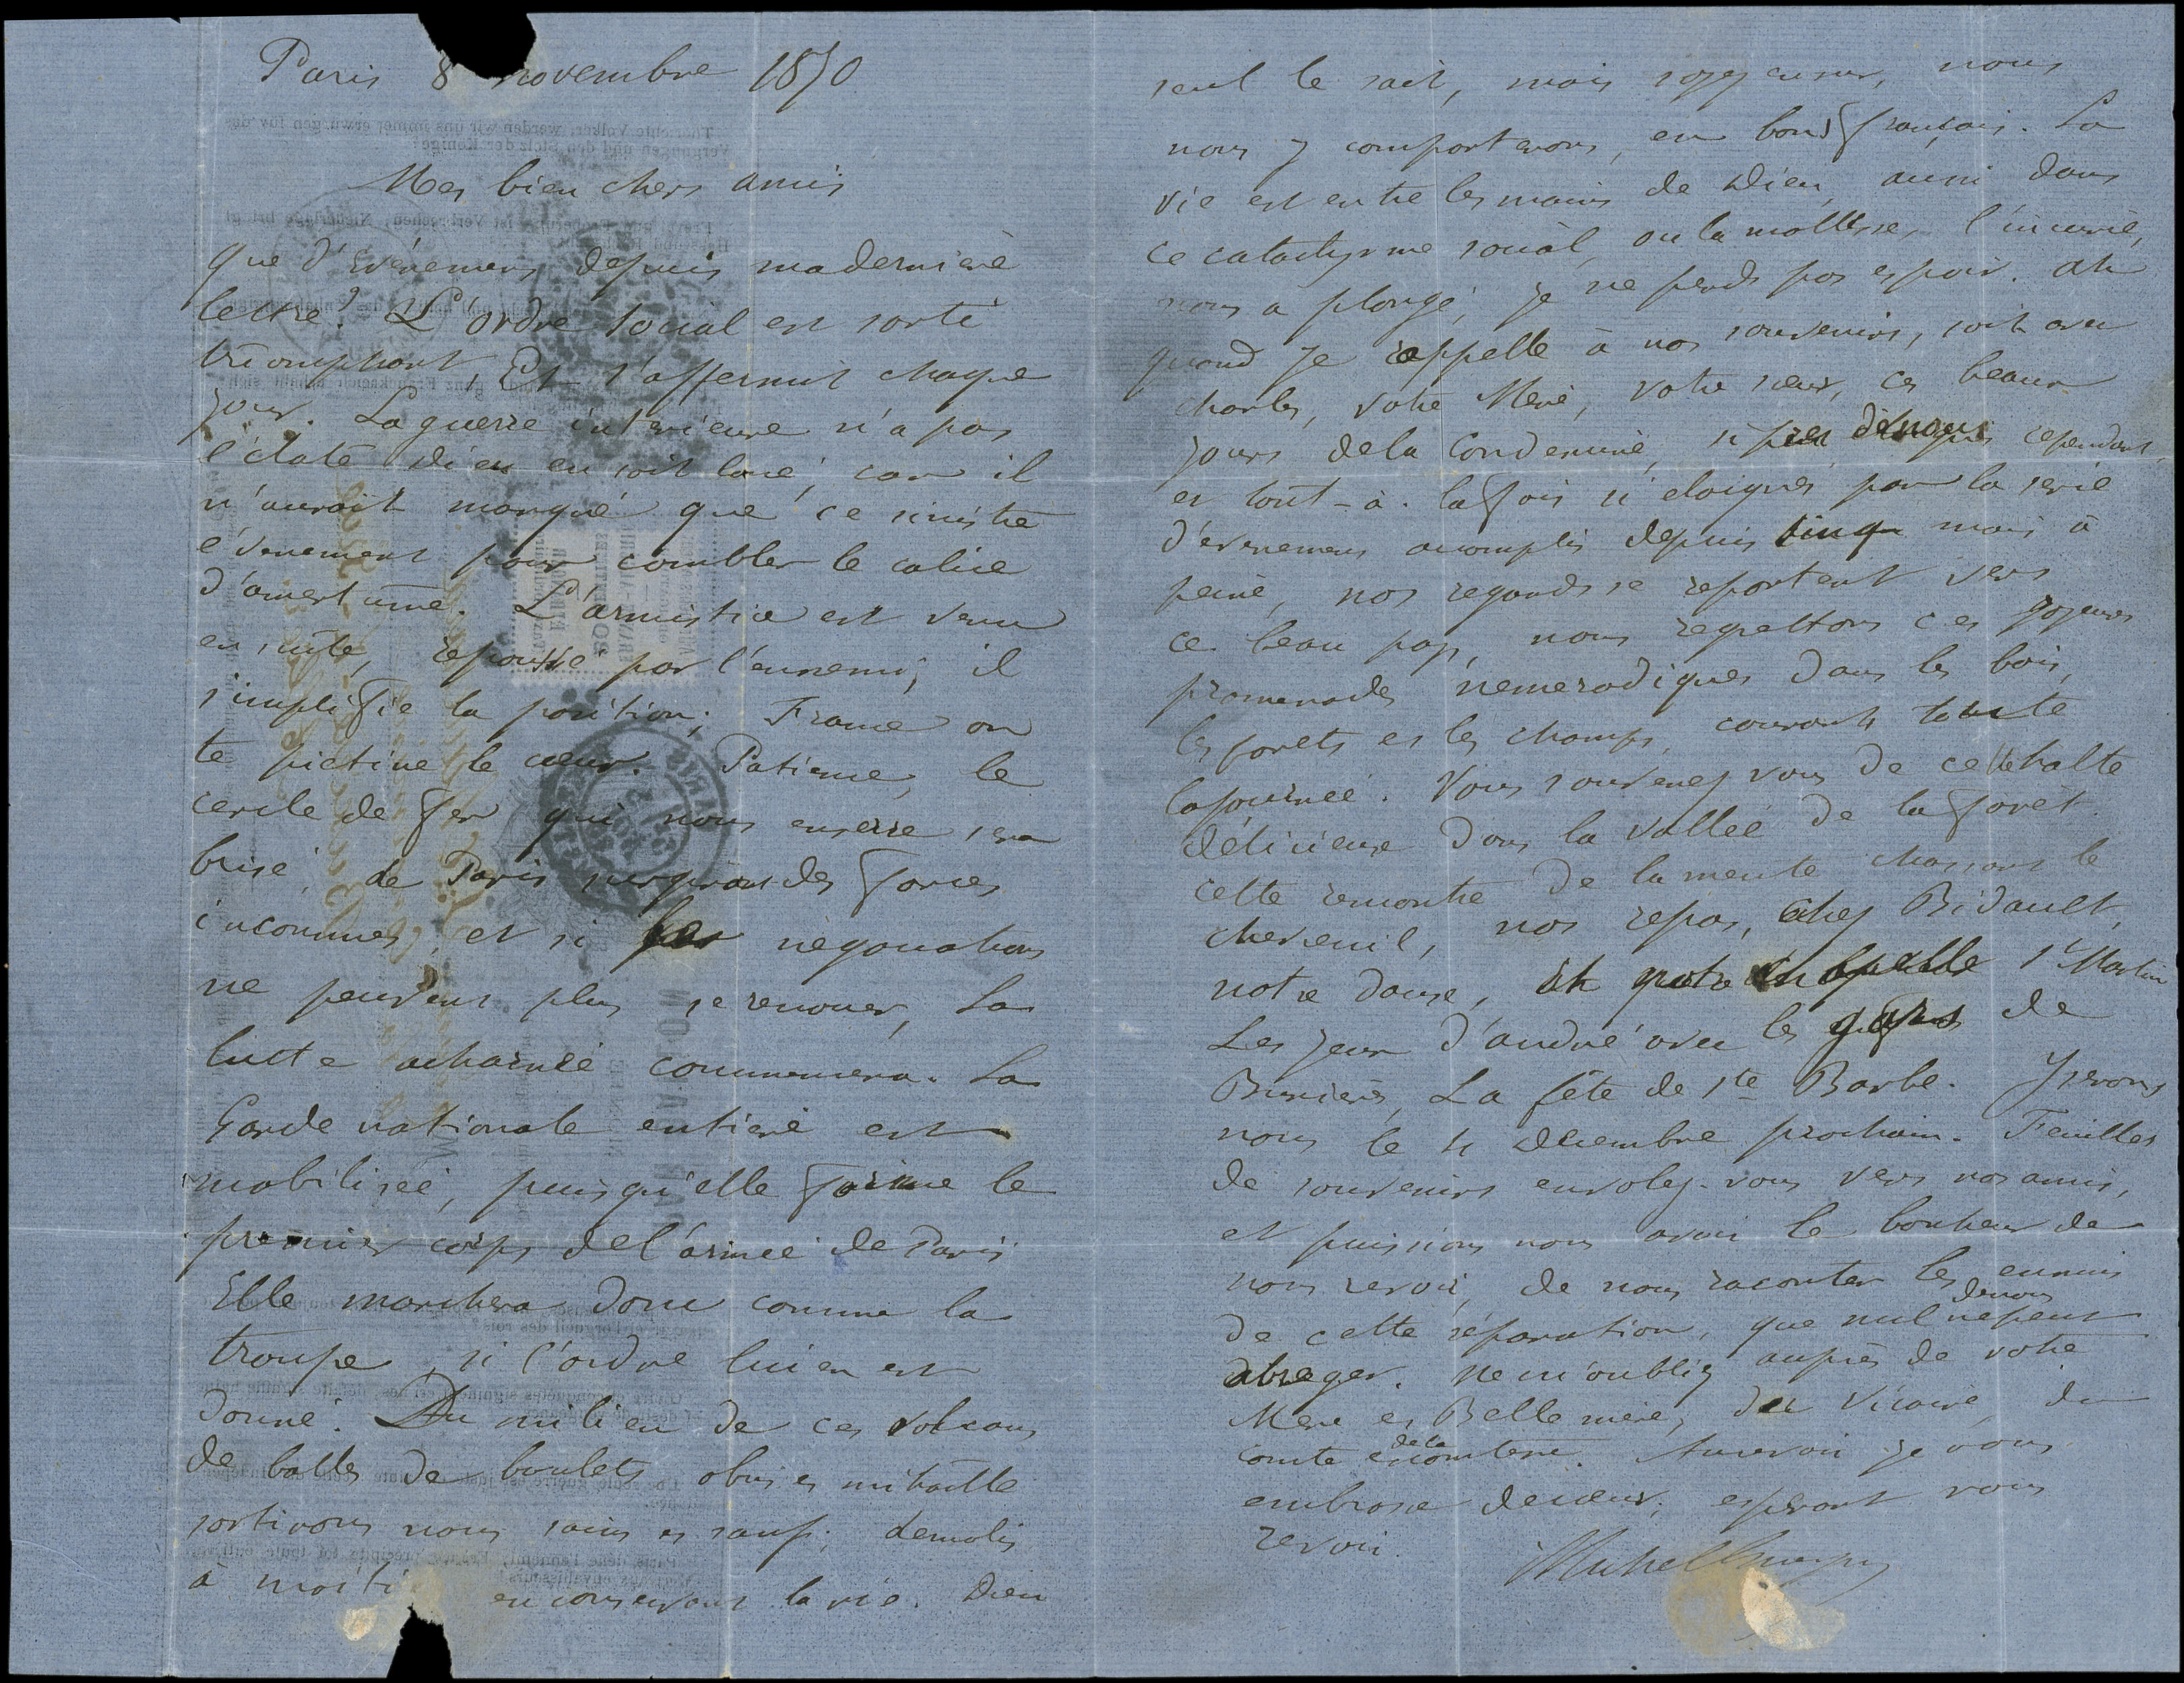 Paris 8 novembre 1870
Mes bien chers amis
que d'Evénemens depuis ma derniere
lettre? L'ordre social est sorti
triomphant, Et s'affermit chaque
jour. La guerre intérieure n'a pas
éclaté Dieu en soit loué, car il
n'aurait manqué que ce sinistre
évenement pour combler le calice
d'amertume. L'armistice est venu
ensuite, repoussé par l'ennemi, il
simplifie la position; France on
te pietine le cœur. Patience, le
cercle de fer qui nous enserre sera
brisé, de Paris surgiront des forces
inconnues, et si les négociations
ne peuvent plus se renouer, La
lutte acharnée commencera. La
Garde nationale entière est
mobilisée, puisqu'elle forme le
premier corps de l'armée de Paris
Elle marchera donc comme la
troupe, si l'ordre lui en est
donné. Du milieu de ces volcans
de balles de boulets obus et mitraille
sortirons nous sains et saufs; demolis
à moitié en conservant la vie. Dieu
seul le sait, mais soyez en sur, nous
nous y comporterons, en bons français. La
vie est entre les mains de Dieu, aussi dans
ce cataclysme social, ou la mollesse, l'incurie,
nous a plongé, je ne perds pas espoir. ah
quand je rappelle à nos souvenirs, soit avec
charles, votre Mere, votre sœur, ces beaux
jours de la Condemine, si pres de nous cependant,
et tout-à-la fois si éloignés par la serie
d'évenemens accomplis depuis cinq mois à
peine, nos regards se reportent vers
ce beau pays, nous regrettons ces joyeuses
promenades nemerodiques dans les bois,
les forets et les champs, courants toute
la journée. Vous souvenez vous de cette halte
délicieuse dans la vallée de la foret
cette rencontre de la meute chassant le
chevreuil, nos repas, chez Bidault,
notre danse, St Martin
Les jeux d'andré avec les gars de
La fête de Ste Barbe. Y serons
nous le 4 décembre prochain. Feuilles
de souvenirs envolez-vous vers nos amis,
et puissions nous avoir le bonheur de
nous revoir, de nous raconter les ennuis
de cette séparation, que nul de nous ne peut
abreger. Ne m'oubliez auprès de votre
Mere et Belle mère, du Vicaire, du
comte et de la comtesse. Au revoir je vous
embrasse de cœur, espérant vous
revoir.
Michel